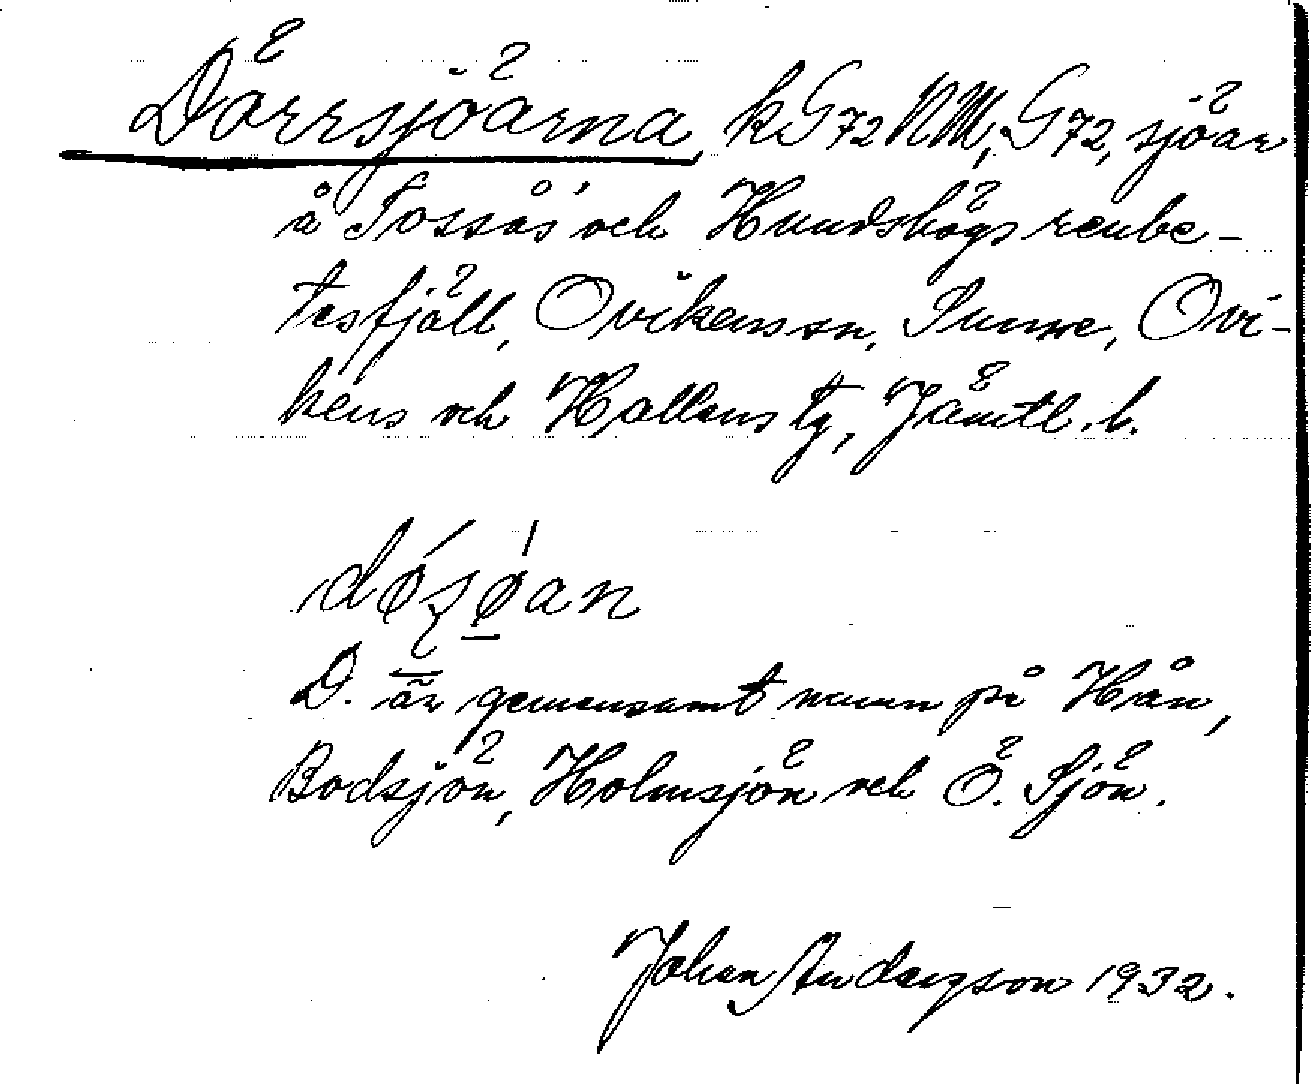 Dörrsjöarna, k G72 NM, G72, sjöar
å Tossås och Hundshögs renbe-
tesfjäll, Ovikens sn, Sunne, Ovi-
kens och Hallens tg, Jämtl. l.
D. är gemensamt namn på Hån,
Bodsjön, Holmsjön och Ö. Sjön.
Johan Andersson 1932.